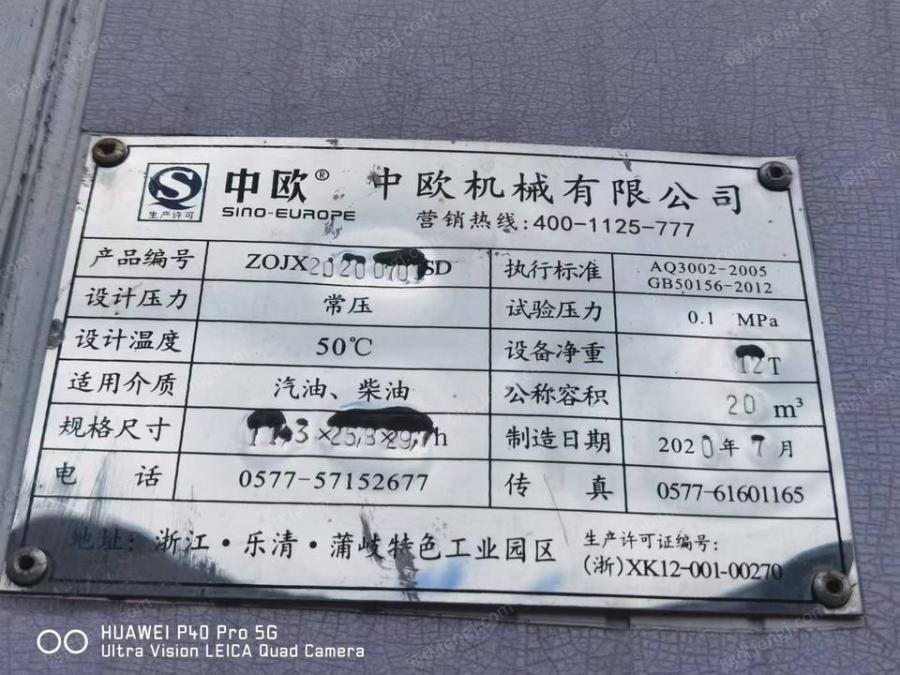 生产许可
中欧®
SINO-EUROPE
中欧机械有限公司
营销热线:400-1125-777
产品编号 ZOJX 2020 SD 执行标准 AQ3002-2005
GB50156-2012
设计压力 常压 试验压力 0.1 MPa
设计温度 50℃ 设备净重 12T
适用介质 汽油、柴油 公称容积 20 m³
规格尺寸 ×25,8×29,7h 制造日期 2020年7月
电话 0577-57152677 传真 0577-61601165
地址: 浙江·乐清·蒲岐特色工业园区
生产许可证编号:
(浙)XK12-001-00270
HUAWEI P40 Pro 5G
Ultra Vision LEICA Quad Camera